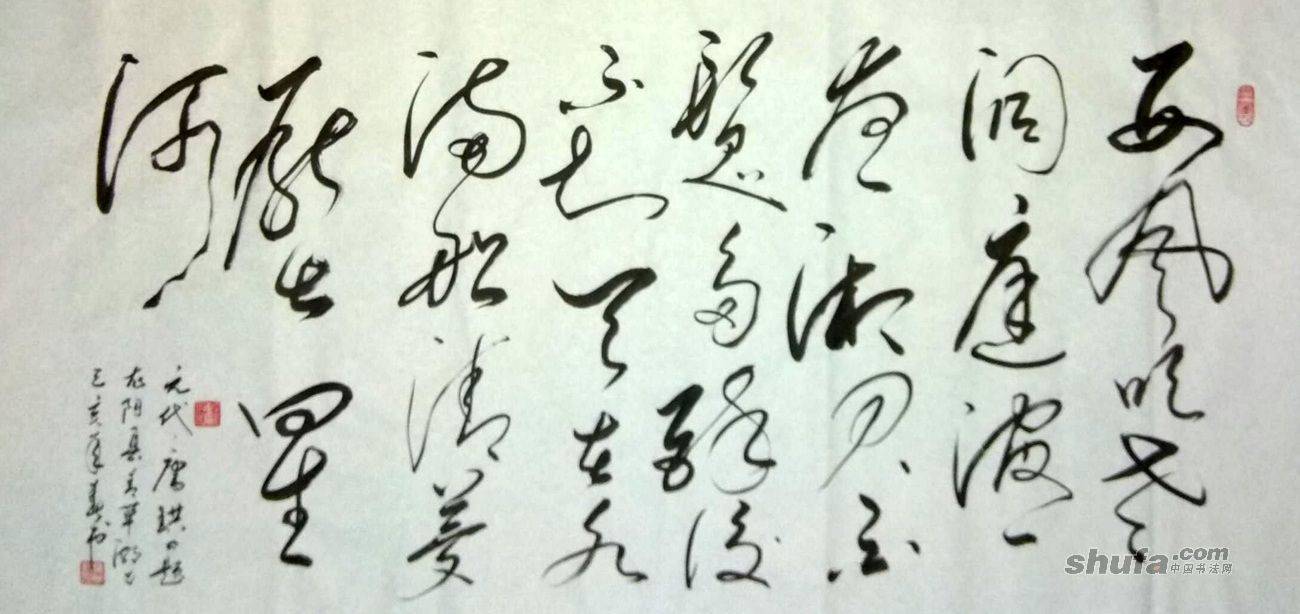 西风吹老
洞庭波一
夜湘君白
髮多醉後
不知天在水
满船清夢
壓星
河
元代·唐珙·题
龙阳县青草湖
己亥
shufa.com
中国书法网